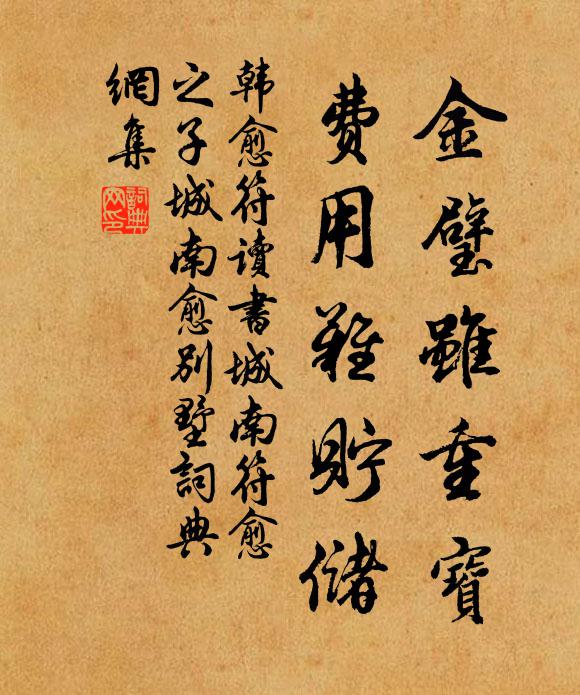 金璧雖重寶
費用難貯儲
韩愈符讀書城南符愈
之子城南愈別墅詞典
網集
詞典網印